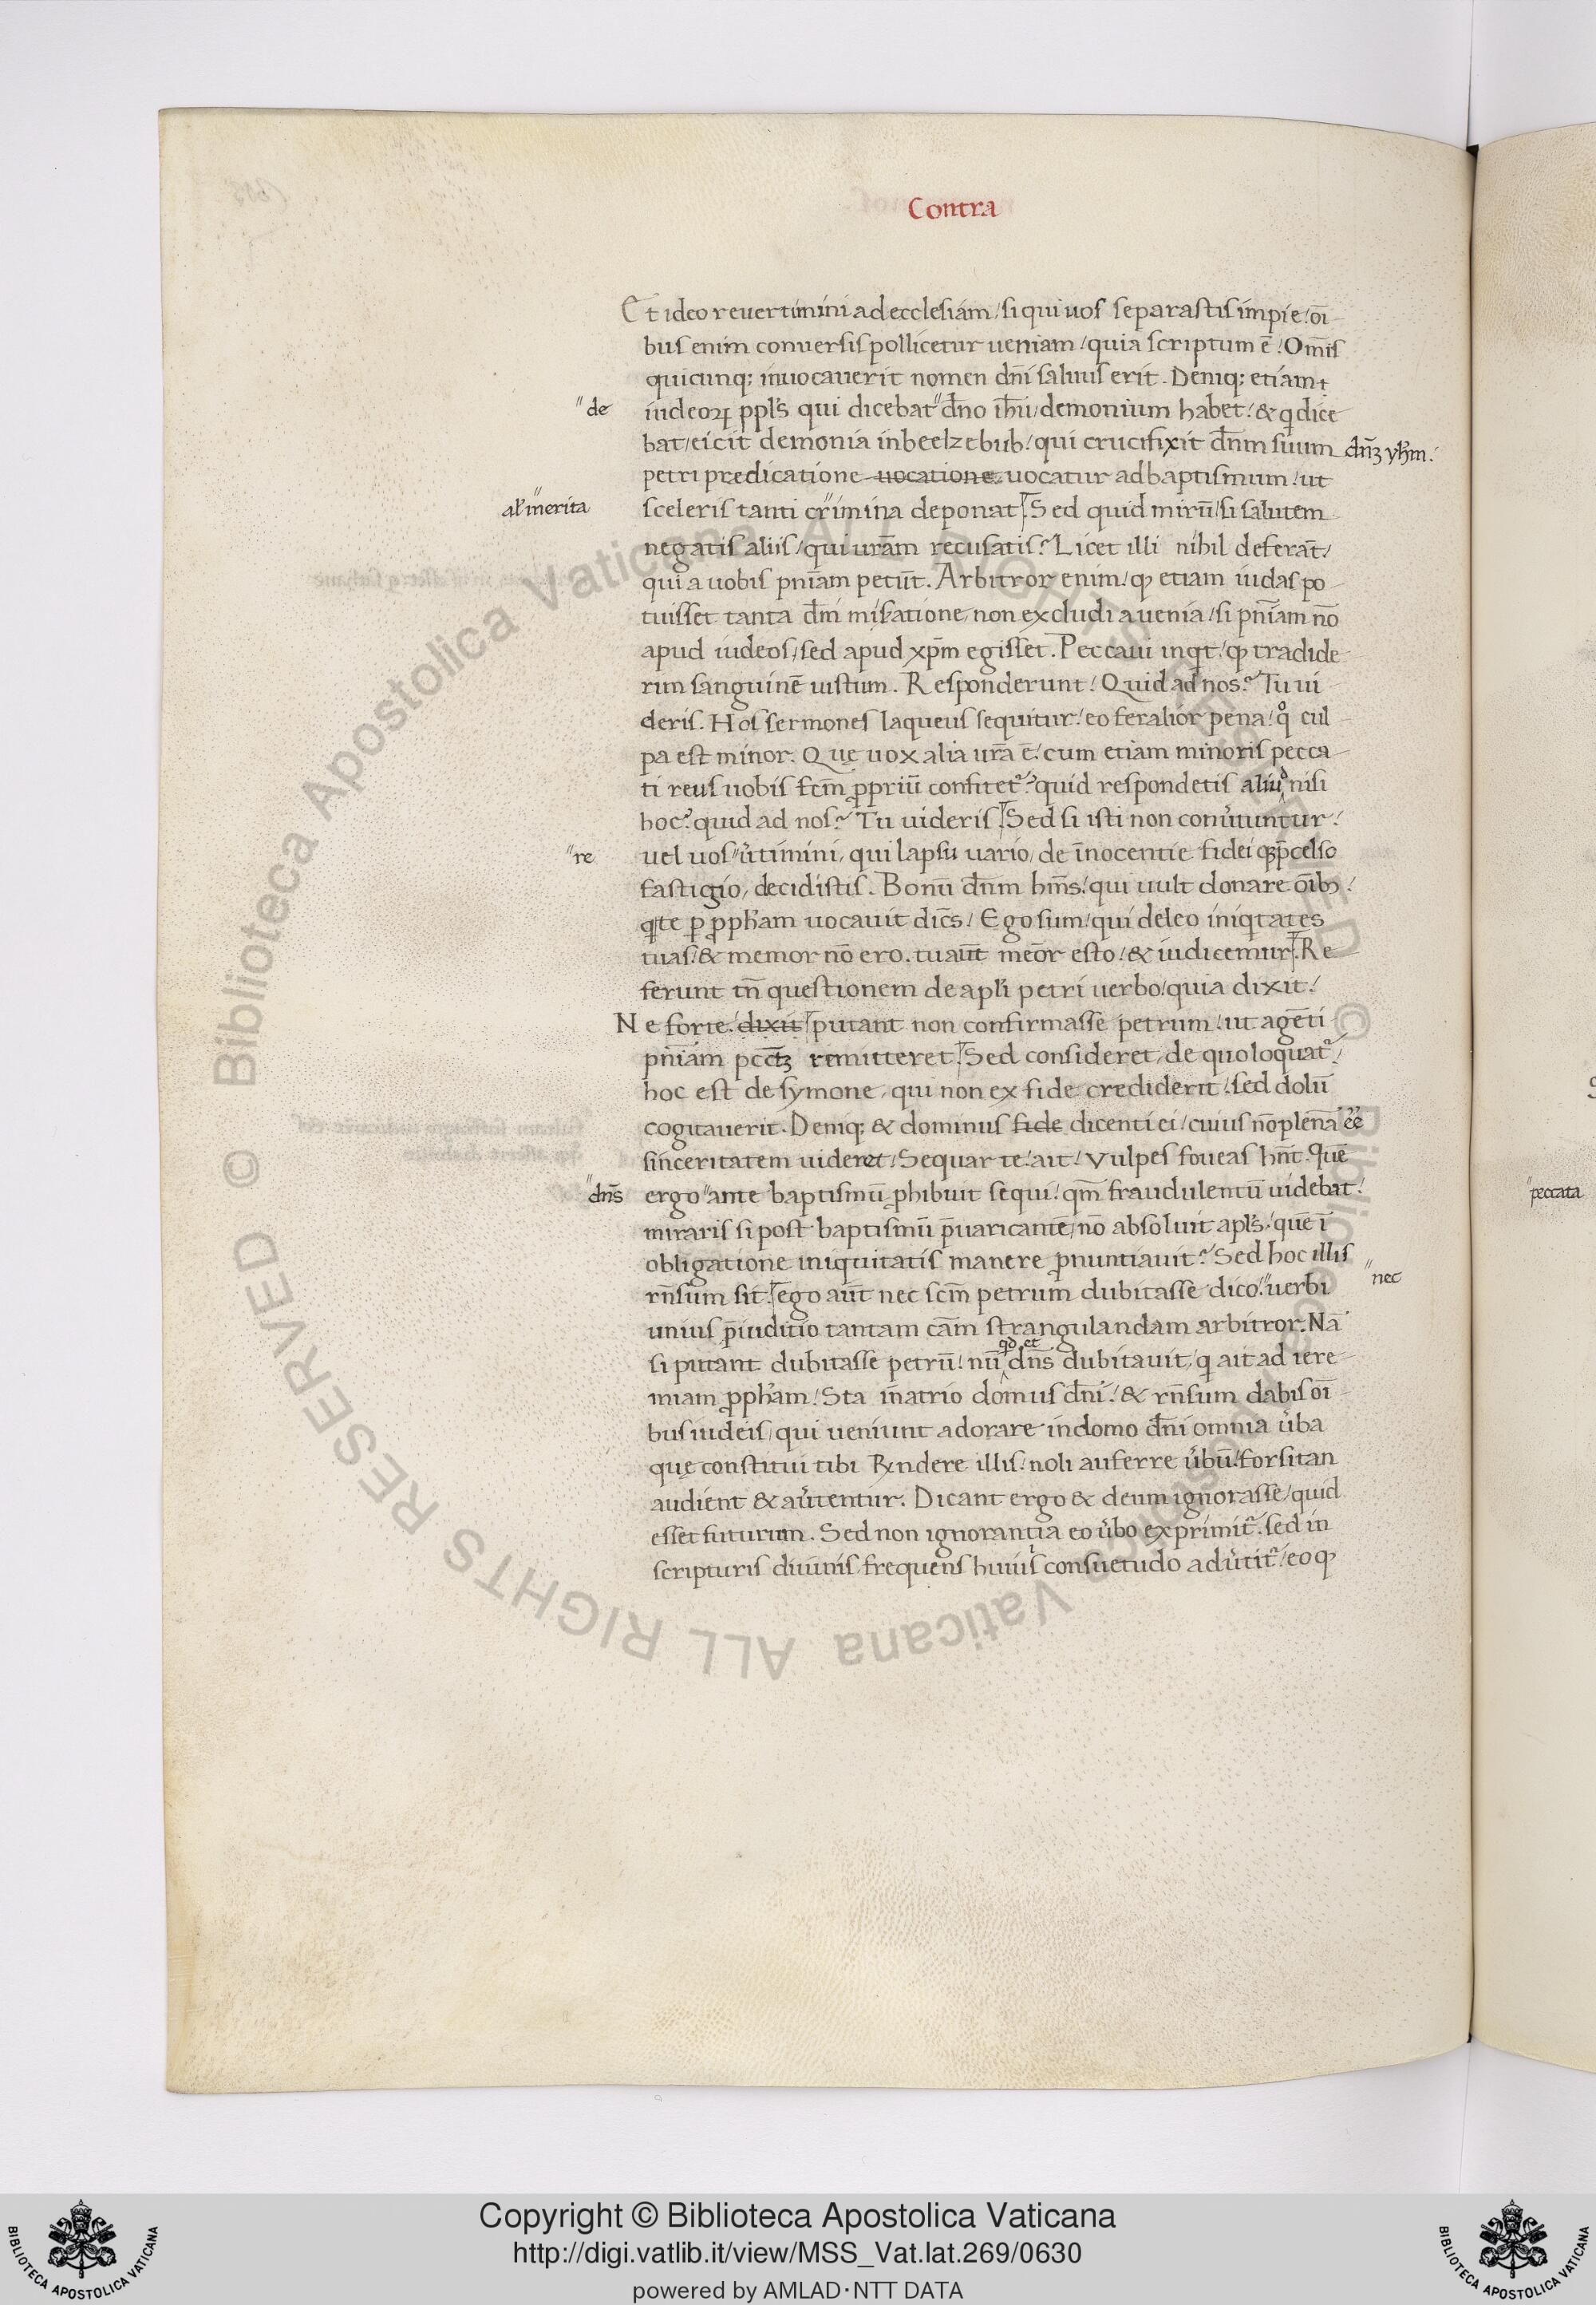 Contra
Et ideo reuertimini ad ecclesiam / si qui uos separastis impie / oī
bus enim conuersis pollicetur ueniam / quia scriptum ē / Om̄is
quicunq; inuocauerit nomen dn̄i saluus erit. Deniq; etiam
"de
iudeoꝝ ppl's qui dicebat" d̄no ih̄u / demonium habet / & q dice
bat / eicit demonia in beelzebub / qui crucifixit dn̄m suum
dn̄ꝫ yħm.
petri predicatione uocatione uocatur ad baptismum / ut
al' "merita
sceleris tanti "crimina deponat. Sed quid mirū / si salutem
negatis aliis / qui ur̄am recusatis? Licet illi nihil deferāt /
qui a uobis pn̄iam petūt. Arbitror enim / ꝙ etiam iudas po
tuisset tanta dn̄i misatione / non excludi a uenia / si pn̄iam nō
apud iudeos / sed apud xp̄m egisset. Peccaui inqt / ꝙ tradide
rim sanguinē iustum. Responderunt / Quid ad nos? Tu ui
deris. Hos sermones laqueus sequitur / eo feralior pena / qͦ cul
pa est minor. Quę uox alia ur̄a ē / cum etiam minoris pecca
ti reus uobis fcm̄ ꝓpriū confitet? quid respondetis aliud nisi
hoc? quid ad nos? Tu uideris. Sed si isti non conu̓tuntur /
"re
uel uos "u̓timini / qui lapsu uario / de īnocentie fidei qꝫ p̄celso
fastigio / decidistis. Bonū dn̄m hm̄s / qui uult donare oībꝫ /
q te ꝑ ꝓpħam uocauit dic̄s / Ego sum / qui deleo iniqtates
tuas / & memor nō ero. tu aūt meōr esto / & iudicemur. Re
ferunt tn̄ questionem de apl'i petri uerbo / quia dixit /
Ne forte / dixit putant non confirmasse petrum / ut agēti
pn̄iam pcct̄ꝫ remitteret. Sed consideret / de quo loquat /
hoc est de symone / qui non ex fide crediderit / sed dolū
cogitauerit. Deniq; & dominus fide dicenti ei / cuius nō plenā ēē
sinceritatem uideret / Sequar te / ait / Vulpes foueas hn̄t. Quē
"dn̄s
ergo "ante baptismū ꝓhibuit sequi / qm̄ fraudulentū uidebat /
miraris si post baptismū p̄uaricantē / nō absoluit apl's / quē ī
obligatione iniquitatis manere ꝓnuntiauit? Sed hoc illis
rn̄sum sit. ego aūt nec scm̄ petrum dubitasse dico / "uerbi
"nec
unius p̄iuditio tantam cām strangulandam arbitror. Nā
si putant dubitasse petrū / nū qd et dn̄s dubitauit / q ait ad iere
miam ꝓpħam / Sta in atrio domus dn̄i / & rn̄sum dabis oī
bus iudeis / qui ueniunt adorare in domo dn̄i omnia u̓ba
quę constitui tibi Rndere illis / noli auferre u̓bū / forsitan
audient & au̓tentur. Dicant ergo & deum ignorasse / quid
esset futurum. Sed non ignorantia eo u̓bo exprimit. sed in
scripturis diuinis / frequens huius consuetudo adu̓tit / eo ꝙ
"peccata
Copyright © Biblioteca Apostolica Vaticana
http://digi.vatlib.it/view/MSS_Vat.lat.269/0630
powered by AMLAD·NTT DATA
BIBLIOTECA APOSTOLICA VATICANA
BIBLIOTECA APOSTOLICA VATICANA
© Biblioteca Apostolica Vaticana ALL RIGHTS RESERVED
© Biblioteca Apostolica Vaticana ALL RIGHTS RESERVED